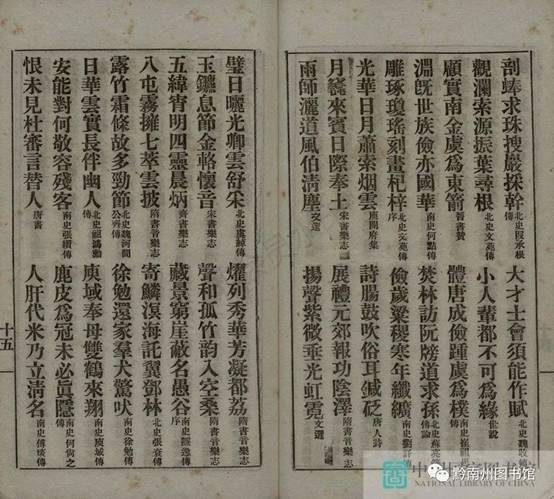 剖蜯求珠搜巖採幹 大才士會須能作賦 北史魏收傳
觀瀾索源振葉尋根 北史文苑傳 小人輩都不可爲緣 世說
顧實南金虞爲東箭 晉書贊 體唐成儉踵虞爲樸
淵旣世族儉亦國華 南史何點傳 焚林訪阮牓道求孫
雕琢瓊瑤刻畫杞梓 北史文苑傳序 儉歲粱稷寒年纖纊 南史劉訏傳
光華日月蕭索烟雲 庾開府集 詩腸鼓吹俗耳鍼砭 唐人詩
月竁來賓日際奉土 宋書樂志 展禮元郊報功陰澤 隋書音樂志
雨師灑道風伯清塵 文選 揚聲紫微垂光虹霓 文選
璧日曬光卿雲舒采 燿列秀華芳凝都荔 隋書音樂志
玉鑣息節金輅懷音 宋書樂志 聲和孤竹韵入空桑 隋書音樂志
五緯宵明四靈晨炳 齊書樂志 藏景窮崖蔽名愚谷 南史隱逸傳序
八屯霧擁七萃雲披 隋書音樂志 寄鱗溟海託翼鄧林 北史張袞傳
露竹霜條故多勁節 北史魏河間公齊傳 徐勉還家羣犬驚吠 南史徐勉傳
日華雲實長伴幽人 北史祖鴻勳傳 庾域奉母雙鶴來翔 南史庾域傳
安能對何敬容殘客 南史張纘傳 鹿皮爲冠未必眞隱 南史何尚之傳
恨未見杜審言替人 唐書 人肝代米乃立清名
十五
NATIONAL LIBRARY OF CHINA
黔南州图书馆